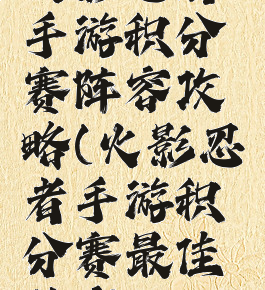 手游积分
赛阵容攻
略(火影忍
者手游积
分赛最佳